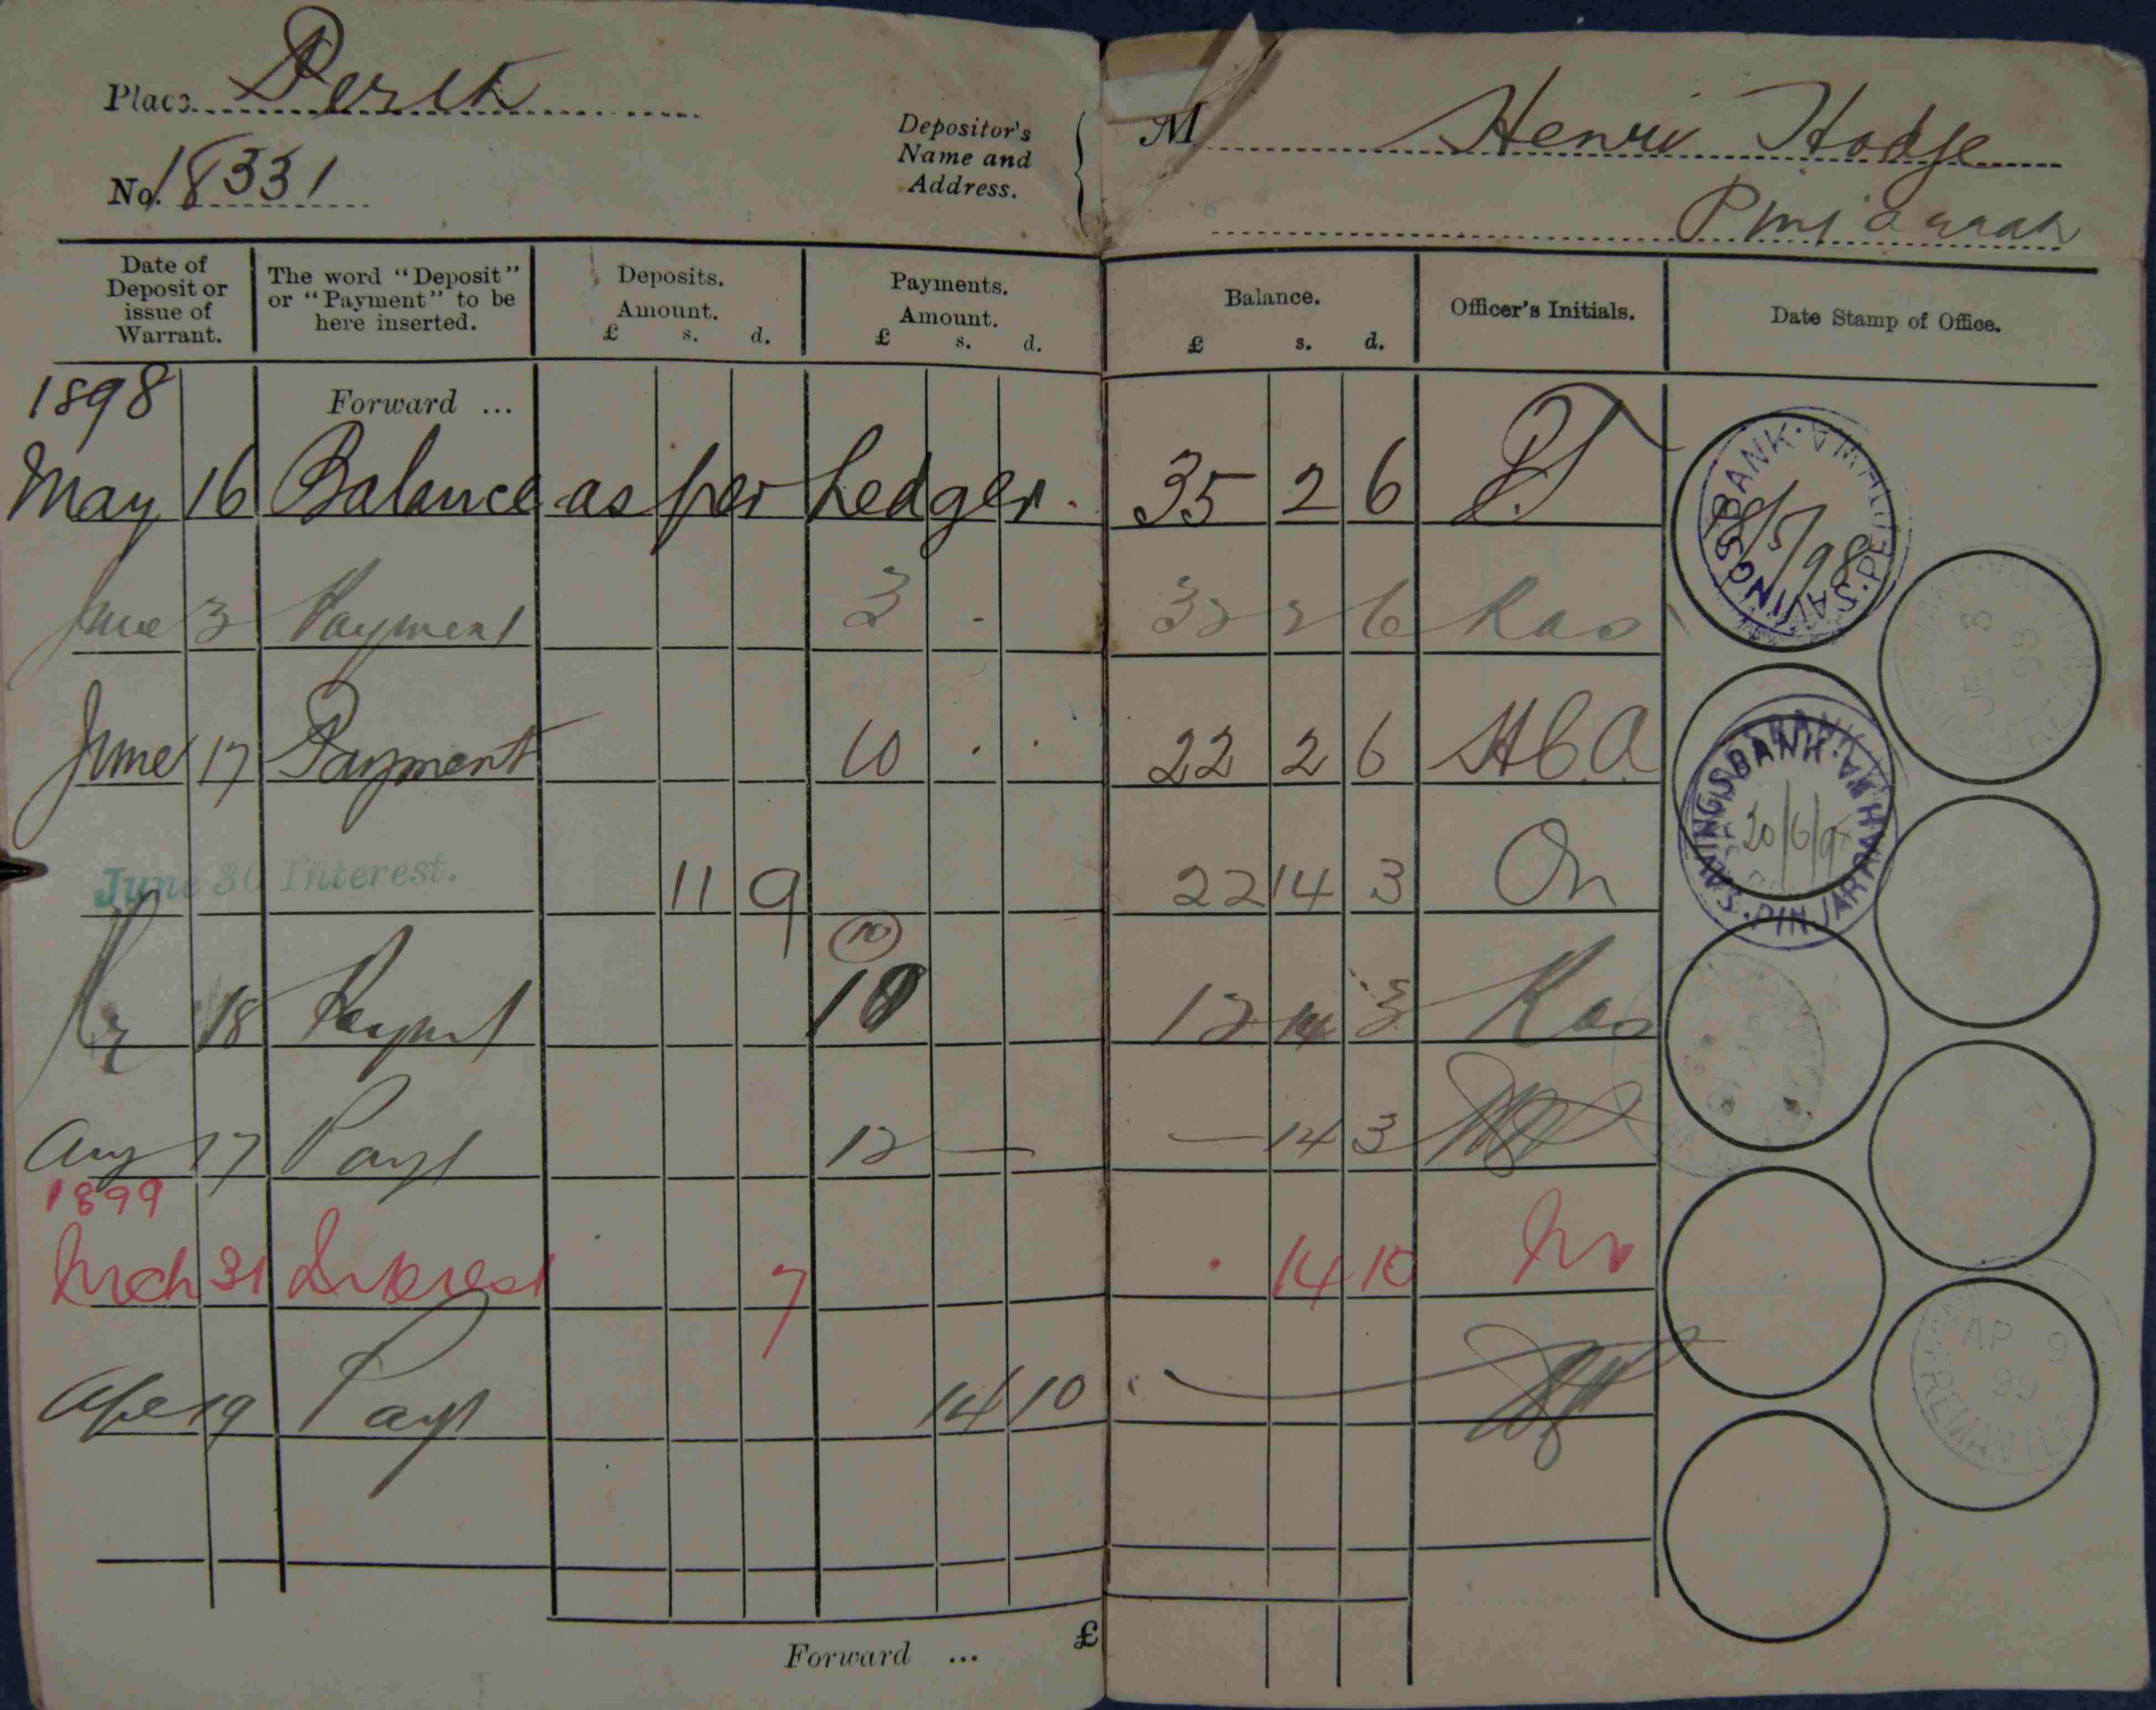 Place Perth
No. 18331
Depositor's Name and Address.
M Henri Hodge
Pinjarrah
Date of Deposit or issue of Warrant.
The word "Deposit" or "Payment" to be here inserted.
Deposits. Amount. £ s. d.
Payments. Amount. £ s. d.
Balance. £ s. d.
Officer's Initials.
Date Stamp of Office.
1898
Forward ...
May 16 Balance as per Ledger. 35 2 6
June 3 Payment 3 - 32 2 6 Kao
June 17 Payment 10 . . 22 2 6
June 30 Interest. 11 9 22 14 3
10
18 Paymt 10 12 14 3 Kao
Aug 17 Payt 12 — — 14 3
1899
Mrch 31 Interest 7 . 14 10
Apl 19 Payt 14 10
Forward ... £
SAVINGS BANK
18/5/98
SAVINGS BANK PINJARRAH W.A.
20/6/98
JE 3 98
AP 9 99
FREMANTLE